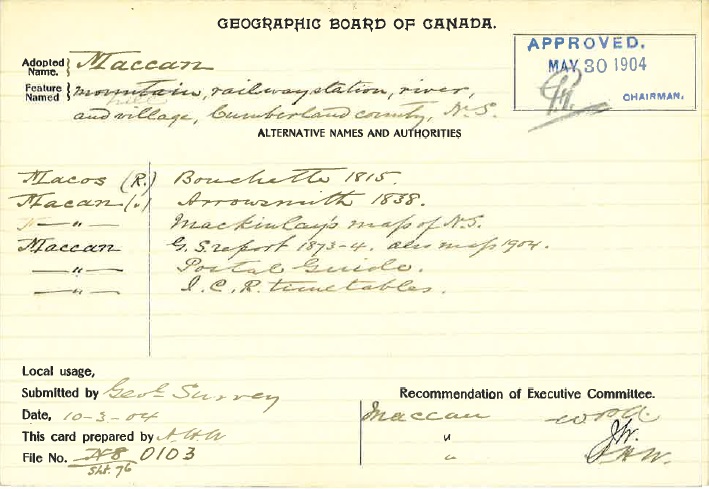 GEOGRAPHIC BOARD OF CANADA.
Adopted Name. } Maccan
APPROVED.
MAY 30 1904
CHAIRMAN.
Feature Named } mountain, railway station, river,
hill
and village, Cumberland county, N.S.
ALTERNATIVE NAMES AND AUTHORITIES
Macos (R.) Bouchette 1815.
Macan (.) Arrowsmith 1838.
— " — Mackinlay's map of N.S.
Maccan G.S. report 1873-4. also map 1904.
— " — Postal Guide.
— " — I.C.R. timetables.
Local usage,
Submitted by Geol Survey
Date, 10-3-04
This card prepared by A.H.W
File No. N8 0103
Sht. 76
Recommendation of Executive Committee.
Maccan Wood.
" J.W.
" A.H.W.